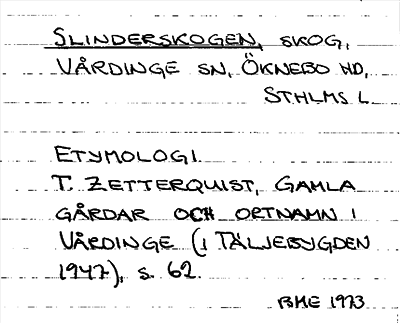 SLINDERSKOGEN, SKOG,
VÅRDINGE SN, ÖKNEBO HD,
STHLMS L
ETYMOLOGI
T. ZETTERQUIST, GAMLA
GÅRDAR OCH ORTNAMN I
VÅRDINGE (I TÄLJEBYGDEN
1947), S. 62.
BME 1973